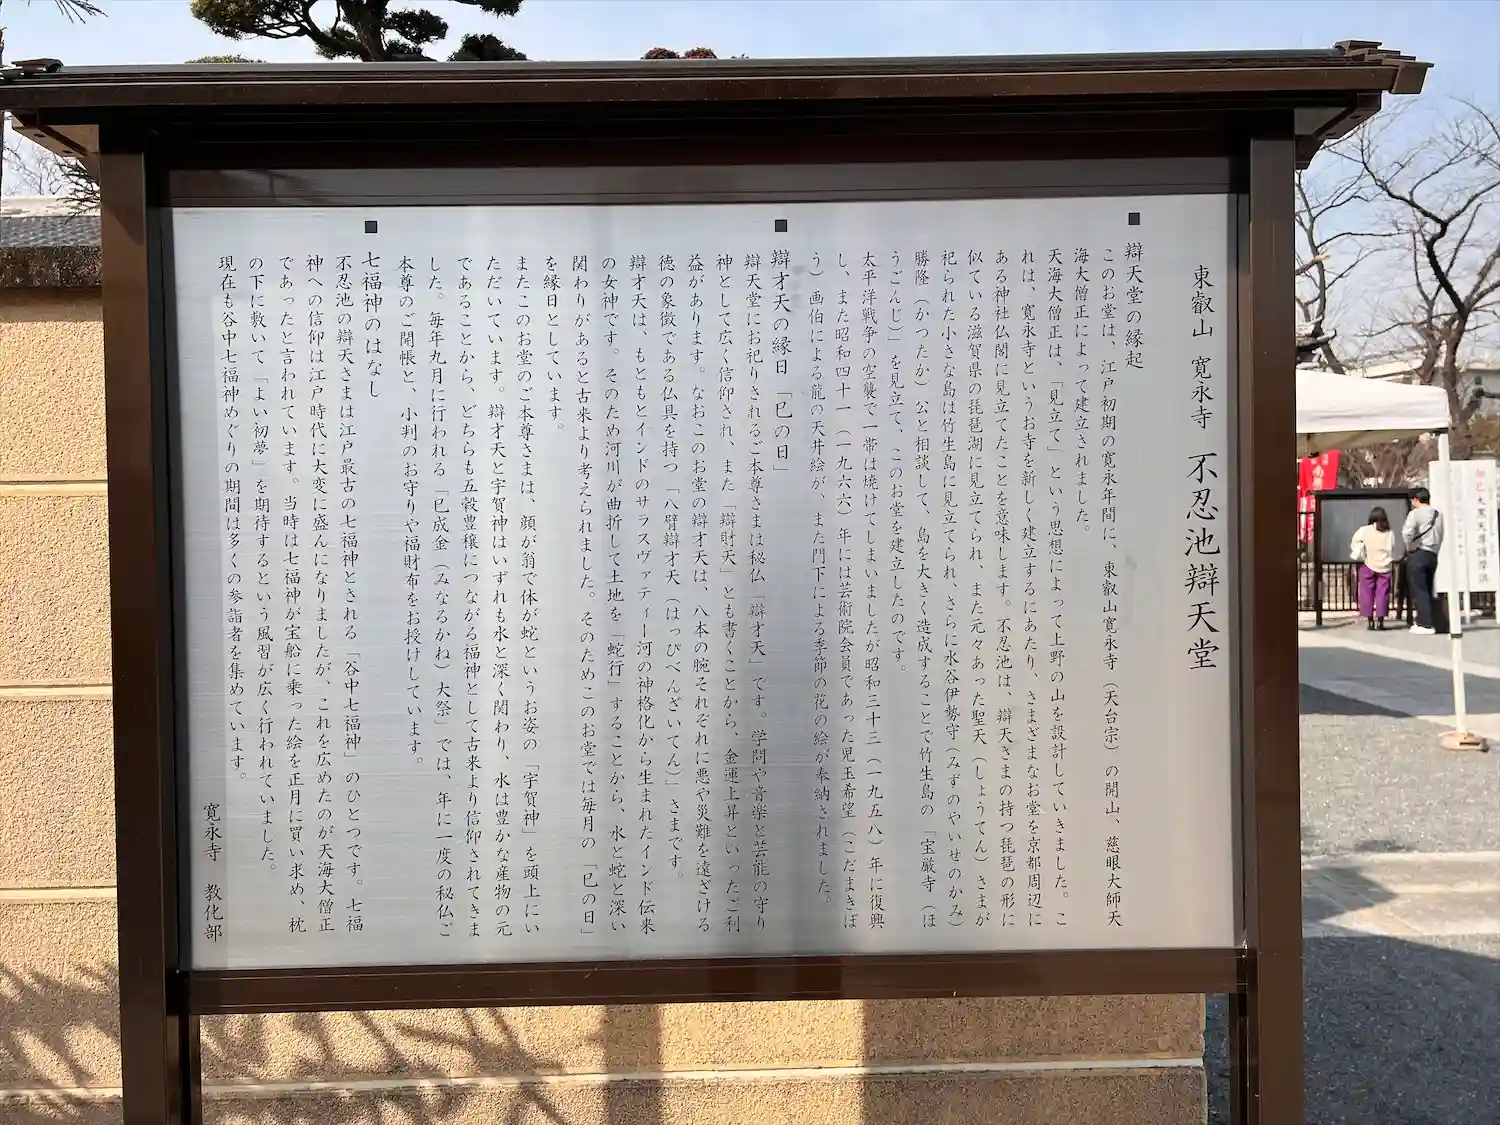 東叡山 寛永寺 不忍池辯天堂
■
辯天堂の縁起
このお堂は、江戸初期の寛永年間に、東叡山寛永寺（天台宗）の開山、慈眼大師天
海大僧正によって建立されました。
天海大僧正は、「見立て」という思想によって上野の山を設計していきました。こ
れは、寛永寺というお寺を新しく建立するにあたり、さまざまなお堂を京都周辺に
ある神社仏閣に見立てたことを意味します。不忍池は、辯天さまの持つ琵琶の形に
似ている滋賀県の琵琶湖に見立てられ、また元々あった聖天（しょうてん）さまが
祀られた小さな島は竹生島に見立てられ、さらに水谷伊勢守（みずのやいせのかみ）
勝隆（かつたか）公と相談して、島を大きく造成することで竹生島の「宝厳寺（ほ
うごんじ）」を見立て、このお堂を建立したのです。
太平洋戦争の空襲で一帯は焼けてしまいましたが昭和三十三（一九五八）年に復興
し、また昭和四十一（一九六六）年には芸術院会員であった児玉希望（こだまきぼ
う）画伯による龍の天井絵が、また門下による季節の花の絵が奉納されました。
■
辯才天の縁日「巳の日」
辯天堂にお祀りされるご本尊さまは秘仏「辯才天」です。学問や音楽と芸能の守り
神として広く信仰され、また「辯財天」とも書くことから、金運上昇といったご利
益があります。なおこのお堂の辯才天は、八本の腕それぞれに悪や災難を遠ざける
徳の象徴である仏具を持つ「八臂辯才天（はっぴべんざいてん）」さまです。
辯才天は、もともとインドのサラスヴァティー河の神格化から生まれたインド伝来
の女神です。そのため河川が曲折して土地を「蛇行」することから、水と蛇と深い
関わりがあると古来より考えられました。そのためこのお堂では毎月の「巳の日」
を縁日としています。
またこのお堂のご本尊さまは、顔が翁で体が蛇というお姿の「宇賀神」を頭上にい
ただいています。辯才天と宇賀神はいずれも水と深く関わり、水は豊かな産物の元
であることから、どちらも五穀豊穣につながる福神として古来より信仰されてきま
した。毎年九月に行われる「巳成金（みなるかね）大祭」では、年に一度の秘仏ご
本尊のご開帳と、小判のお守りや福財布をお授けしています。
■
七福神のはなし
不忍池の辯天さまは江戸最古の七福神とされる「谷中七福神」のひとつです。七福
神への信仰は江戸時代に大変に盛んになりましたが、これを広めたのが天海大僧正
であったと言われています。当時は七福神が宝船に乗った絵を正月に買い求め、枕
の下に敷いて「よい初夢」を期待するという風習が広く行われていました。
現在も谷中七福神めぐりの期間は多くの参詣者を集めています。
寛永寺 教化部